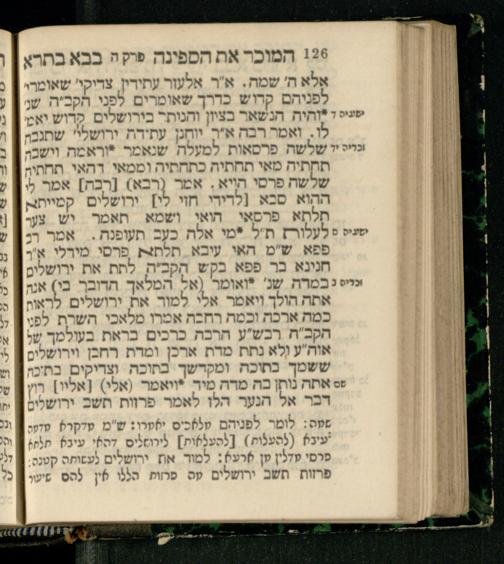 126 המוכר את הספינה פרק ה בבא בתרא
אלא ה׳ שמה. א״ר אלעזר עתידין צדיקי׳ שאומרי׳
לפניהם קדוש כדרך שאומרים לפני הקב״ה שנ׳
ישעיה ד *והיה הנשאר בציון והנותר בירושלים קדוש יאמ׳
לו. ואמר רבה א״ר יוחנן עתידה ירושלי׳ שתגבה
זכריה יד שלשה פרסאות למעלה שנאמר *וראמה וישבה
תחתיה מאי תחתיה כתחתיה וממאי דהאי תחתיה
שלשה פרסי הויא. אמר (רבא) [רבה] אמר לי
ההוא סבא [לדידי חזי לי] ירושלים קמייתא
תלתא פרסאי הואי ושמא תאמר יש צער
ישעיה ס לעלות ת״ל *מי אלה כעב תעופנה. אמר רב
פפא ש״מ האי עיבא תלתא פרסי מידלי א״ר
חנינא בר פפא בקש הקב״ה לתת את ירושלים
זכריה ב במדה שנ׳ *ואומר (אל המלאך הדובר בי) אנה
אתה הולך ויאמר אלי למוד את ירושלים לראות
כמה ארכה וכמה רחבה אמרו מלאכי השרת לפני
הקב״ה רבש״ע הרבה כרכים בראת בעולמך של
אוה״ע ולא נתת מדת ארכן ומדת רחבן וירושלים
ששמך בתוכה ומקדשך בתוכה וצדיקים בתוכה
שם אתה נותן בה מדה מיד *ויאמר (אלי) [אליו] רוץ
דבר אל הנער הלז לאמר פרזות תשב ירושלים
שמה: לומר לפניהם מלאכים יאמרו: ש״מ מדקרא מדמה
עיבא (להעלות) [להעלאות] לירושלים דהאי עיבא תלתא
פרסי מדלין מן ארעא: למוד את ירושלים לעשותה קטנה:
פרזות תשב ירושלים מה פרזות הללו אין להם שיעור